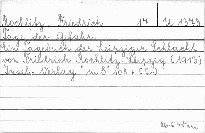 Rochlitz, Friedrich 14 U 1373
Tage der Gefahr.
Ein Tagebuch der Leipziger Schlacht
von Friedrich Rochlitz. Leipzig (1913)
Insel-Verlag